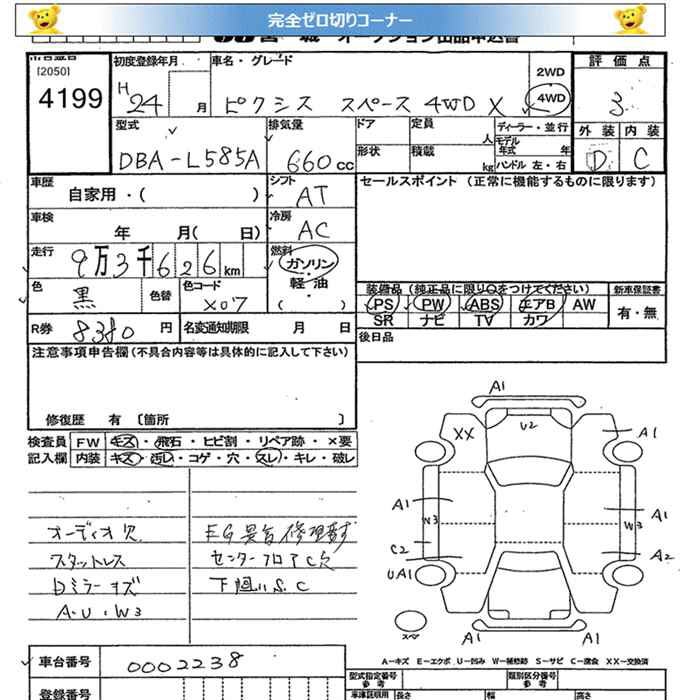 完全ゼロ切りコーナー
オークション出品申込書
[2050]
4199
初度登録年月
H 24 月
車名・グレード
ピクシス スペース 4WD X
2WD
4WD
評価点
3
外装 内装
D C
型式
DBA-L585A
排気量
660 cc
ドア
定員 人
形状
積載 kg
ディーラー・並行
モデル年式 年
ハンドル 左・右
車歴
自家用・( )
シフト
AT
セールスポイント (正常に機能するものに限ります)
車検
年 月( 日)
冷房
AC
走行
9万3千626km
燃料
ガソリン・軽油
( )
色
黒
色替
色コード
X07
装備品(純正品に限り○をつけてください)
PS PW ABS エアB AW
SR ナビ TV カワ
新車保証書
有・無
R券
8380 円
名変通知期限 月 日
後日品
注意事項申告欄(不具合内容等は具体的に記入して下さい)
修復歴 有 〔箇所 〕
検査員記入欄
FW キズ・飛石・ヒビ割・リペア跡・×要
内装 キズ・汚レ・コゲ・穴・スレ・キレ・破レ
オーディオ欠
スタットレス
Dミラーキズ
A.U.W3
EG異音修理要す
センターフロアC穴
下廻りS.C
A1
XX
U2
A1
A1
W3
C2
UA1
A1
W3
A2
A1
A1
スペア
A―キズ E―エクボ U―凹み W―補修跡 S―サビ C―腐食 XX―交換済
車台番号
0002238
登録番号
型式指定番号
参考
類別区分番号
参考
車検証明用
長さ
幅
高さ